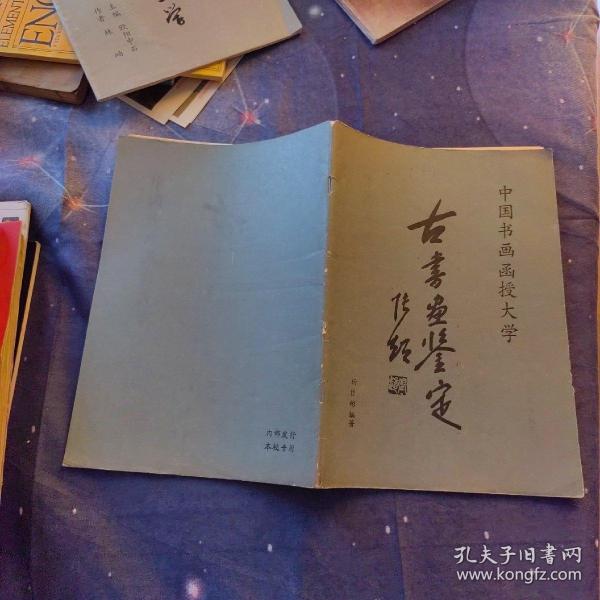 ELEMENT
ENG
主编 欧阳中石
作者 林 岫
中国书画函授大学
古書画鉴定
张
编著
内部发行
本校专用
孔夫子旧书网
www.kongfz.com